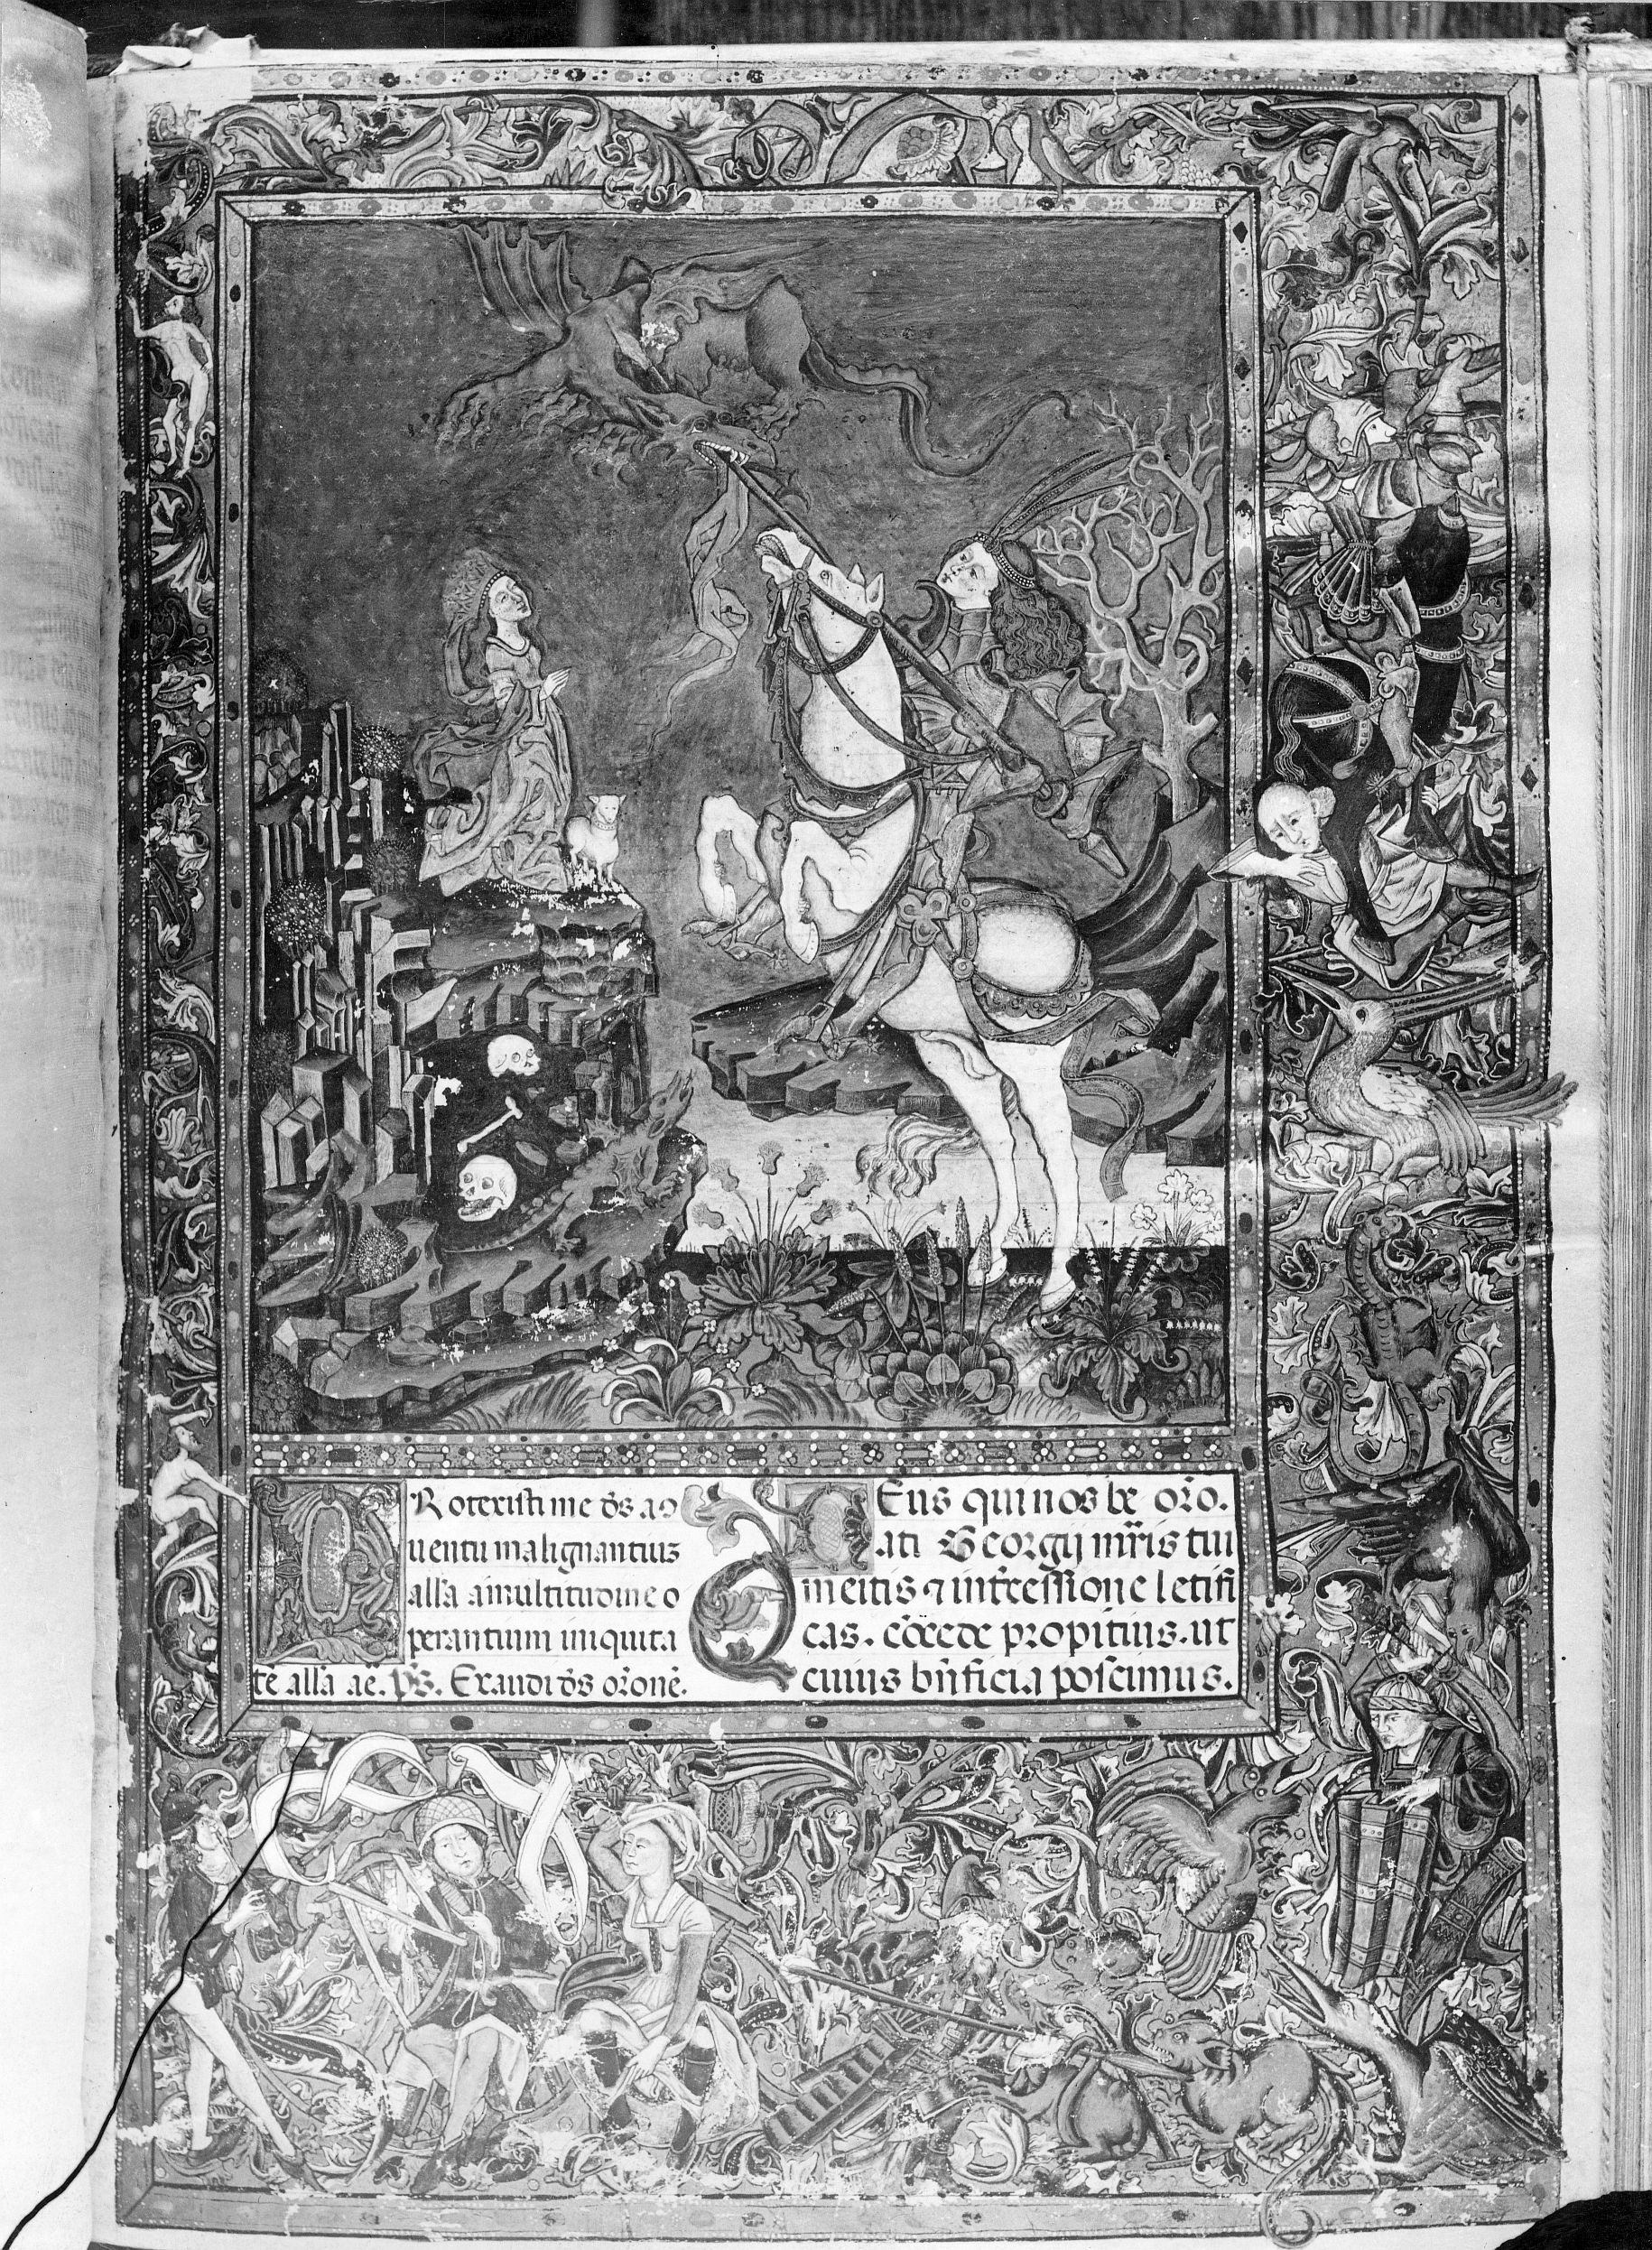 PRotexisti me ds a co
uentu malignantiuz
alla a multitudine o
perantium iniquita
te alla ae. ps. Exaudi ds oronē.
DEus qui nos be oro.
ati Georgij mris tui
meitis ⁊ intercessione letifi
cas. cōcede propitius. ut
Q cuius bnficia poscimus.